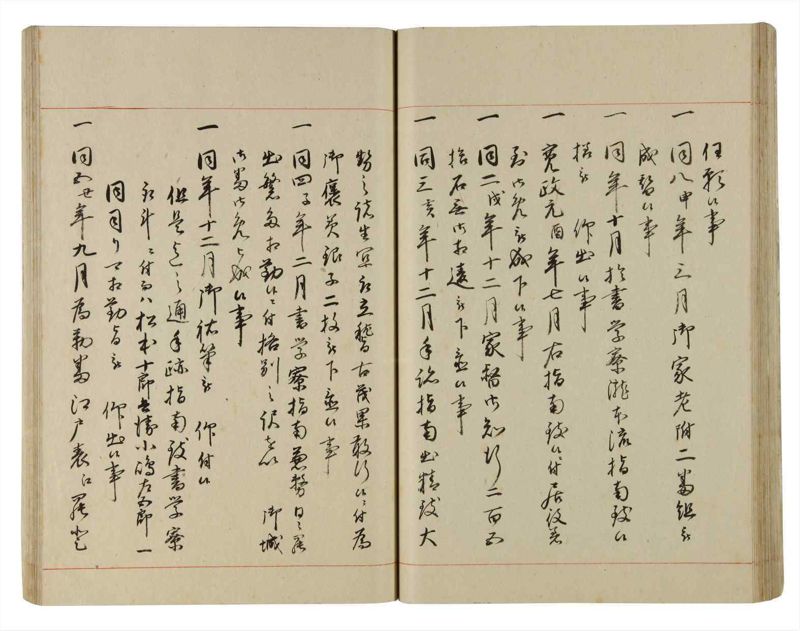 任頼候事
一 同八申年三月御家老附二番組被
成替候事
一 同年十月於書学寮瀧本流指南致候
様被 仰出候事
一 寛政元酉年七月右指南致候ニ付居役者
御免被成下候事
一 同二戌年十二月家督御知行二百五
拾石無御相違被下置候事
一 同三亥年十二月手跡指南出精致大
勢之諸生 立稽古 候ニ付為
御褒美銀子二枚被下置候事
一 同四子年二月書学寮指南兼務日々罷
出繁多相勤候ニ付格別之訳を以 御城
御番御免被成候事
一 同年十二月御祐筆被 仰付候
但是迄之通手跡指南致書学寮
永斗ニ付而ハ松本十郎 小嶋左五郎一
同司り可相勤旨被 仰出候事
一 同五丑年九月為勤番江戸表江罷登